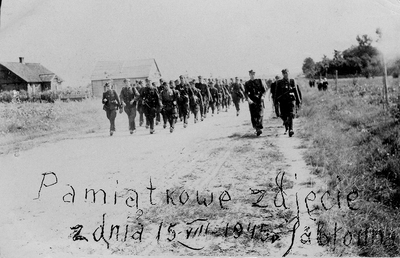 Pamiątkowe zdjęcie
z dnia 15-VII-1945r. Jabłonna